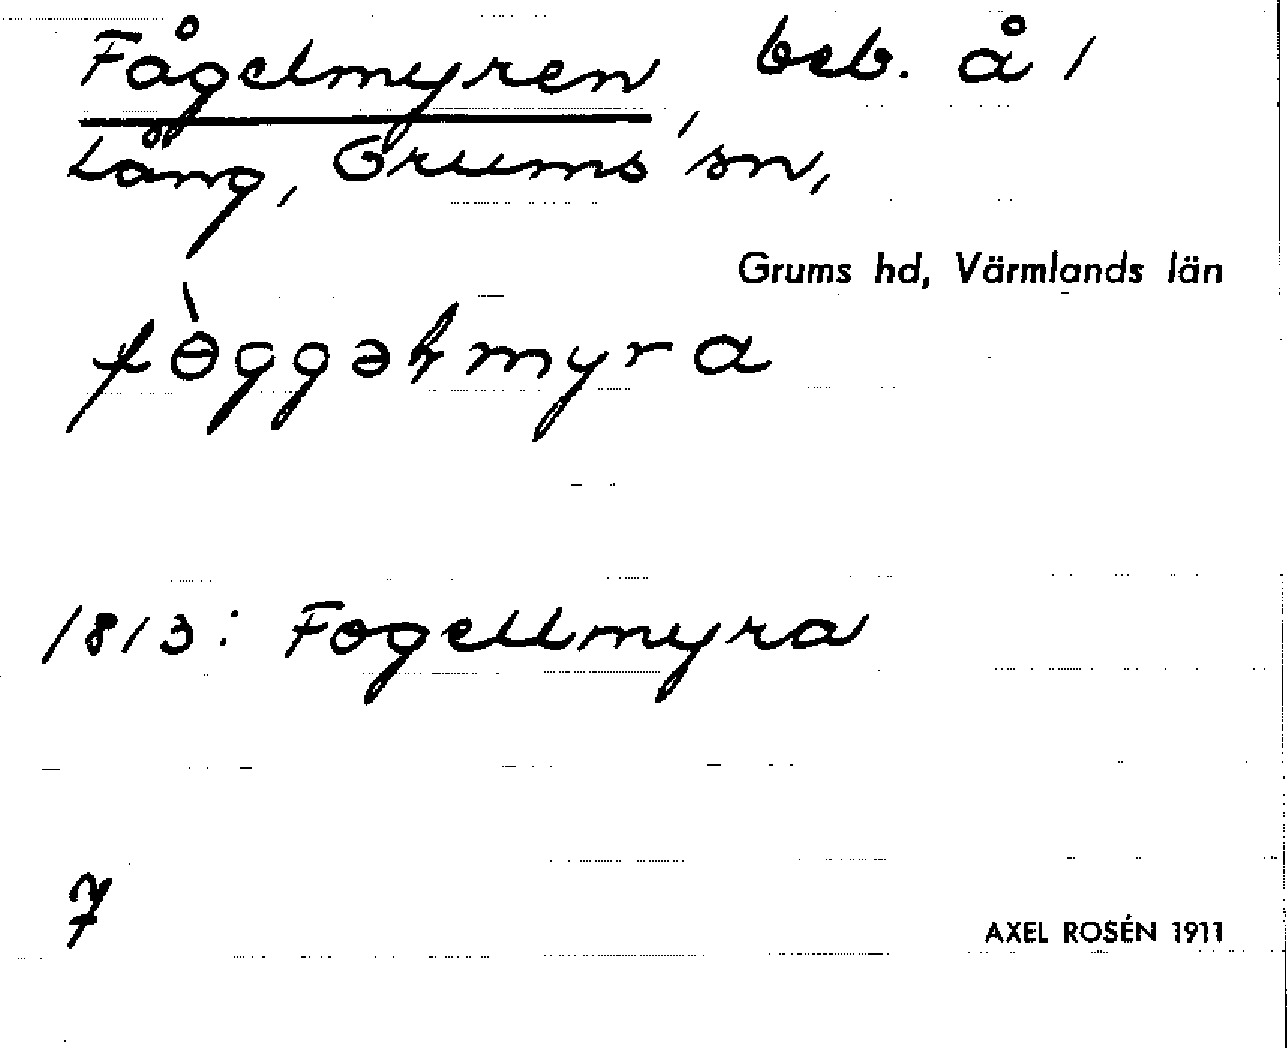 Fågelmyren, beb. å /
Lång, Grums sn,
Grums hd, Värmlands län
fɵ̀ggəɫmyra
1813: Fogellmyra
7
AXEL ROSÉN 1911